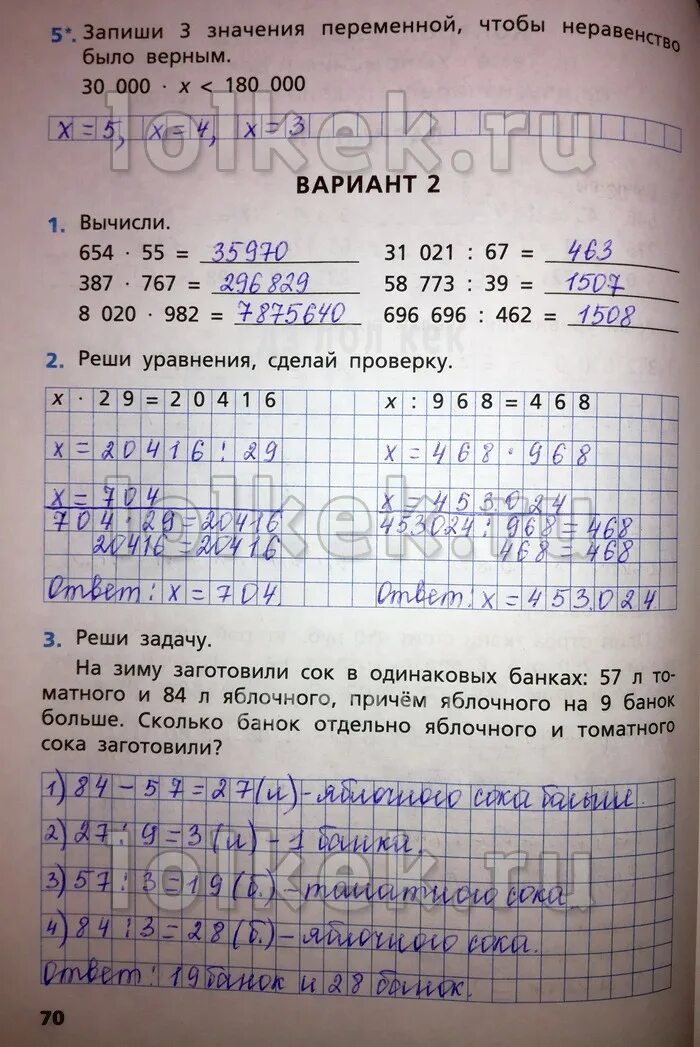 5*. Запиши 3 значения переменной, чтобы неравенство
было верным.
30 000 · x < 180 000
x = 5, x = 4, x = 3
lolkek.ru
ВАРИАНТ 2
1. Вычисли.
654 · 55 = 35970 31 021 : 67 = 463
387 · 767 = 296829 58 773 : 39 = 1507
8 020 · 982 = 7875640 696 696 : 462 = 1508
2. Реши уравнения, сделай проверку.
x · 29 = 20416 x : 968 = 468
x = 20416 : 29 x = 468 · 968
x = 704 x = 453.024
lolkek.ru
704 : 29 = 20416 453024 : 968 = 468
20416 = 20416 468 = 468
Ответ: x = 704 Ответ: x = 453.024
3. Реши задачу.
На зиму заготовили сок в одинаковых банках: 57 л то-
матного и 84 л яблочного, причём яблочного на 9 банок
больше. Сколько банок отдельно яблочного и томатного
сока заготовили?
1) 84 – 57 = 27 (л) – яблочного сока больше.
2) 27 : 9 = 3 (л) – 1 банка.
lolkek.ru
3) 57 : 3 = 19 (б.) – томатного сока.
4) 84 : 3 = 28 (б.) – яблочного сока.
Ответ: 19 банок и 28 банок.
70